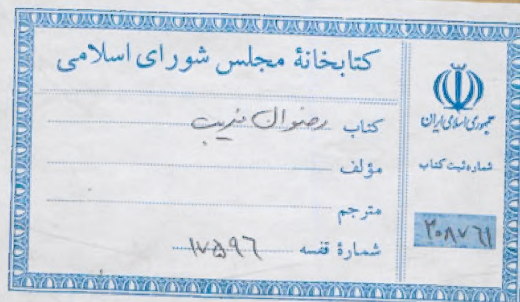 کتابخانهٔ مجلس شورای اسلامی
کتاب
مؤلف
مترجم
شمارهٔ قفسه ۱۷۵۹۶
جمهوری اسلامی ایران
شماره ثبت کتاب
۲۰۸۷۶۱